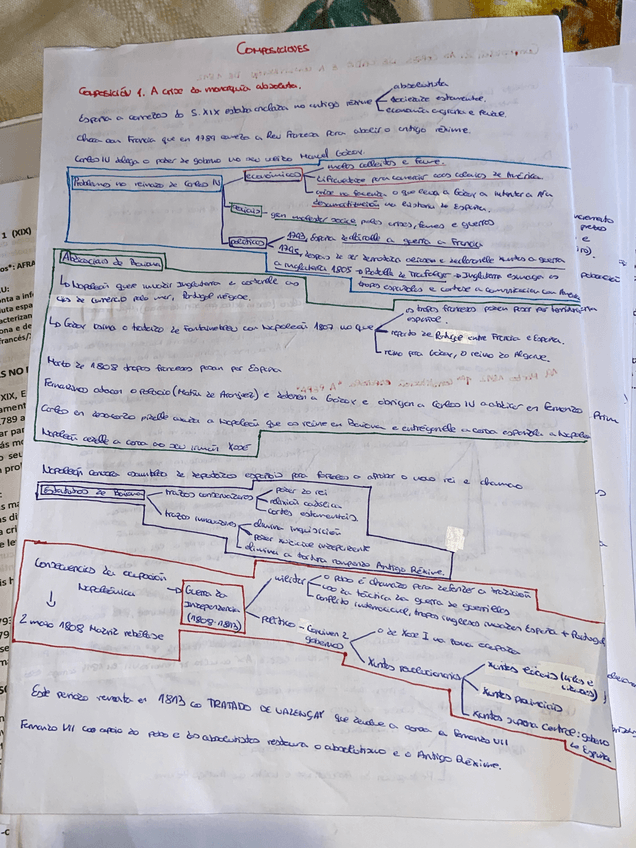 COMPOSICIONES
COMPOSICIÓN 1. A crise da monarquía absoluta.
España a comezos do S. XIX estaba enclaza no antigo réxime
absolutista
sociedade estamental.
economía agraria e feudal.
Choca con Francia que en 1789 comeza a Rev Francesa para abolir o antigo réxime.
Carlos IV delega o poder de goberno no seu valido Manuel Godoy.
Problemas no reinado de Carlos IV
económicos
malas colleitas e fame.
dificultade para comerciar coas colonias de América
crise na facenda, o que leva a Godoy a intentar a 1ª
desamortización na historia de España.
sociais
gran malestar social polas crises, fames e guerras
políticos
1793, España decláralle a guerra a Francia
1795, despois de ser derrotada alíanse e decláranlle xuntos a guerra
a Inglaterra 1805 → Batalla de Trafalgar → Inglaterra esmaga as
tropas españolas e cortase a comunicación con América
Abdicacións de Baiona
↳ Napoleón quere invadir Inglaterra e cortarlle as
vías de comercio polo mar, Portugal négase.
↳ Godoy asina o tratado de Fontainebleu con Napoleón 1807 no que
as tropas francesas poden pasar por territorio
español.
reparto de Portugal entre Francia e España.
reino pra Godoy, o reino do Algarve.
Marzo de 1808 tropas francesas pasan por España
Fernandinos atacan o palacio (Motín de Aranjuez) e deteñen a Godoy e obrigan a Carlos IV a abdicar en Fernando
Carlos en desacordo pídelle axuda a Napoleón que os reúne en Baiona e entréganlle a coroa española a Napoleón
Napoleón cédelle a coroa ao seu irmán Xosé
Napoleón convoca asamblea de deputados españois para facerlles aprobar o novo rei e chamou
Estatutos de Baiona
trazos conservadores
poder do rei
relixión católica
cortes estamentais.
trazos innovadores
elimina inquisición
poder xudicial independente
elimina a tortura rompendo Antigo Réxime.
Consecuencias da ocupación
Napoleónica
↓
2 maio 1808 Madrid rebélase
→ Guerra da
Independencia
(1808-1813)
militar
o pobo é chamado para defender a tradición
uso da táctica da guerra de guerrillas
conflito internacional, tropas inglesas invaden España + Portugal
político - Conviven 2
gobernos
o de Xosé I na zona ocupada
Xuntas revolucionarias
Xuntas locais (vilas e
cidades)
Xuntas provinciais
Xunta suprema Central: goberno
de España
Este periodo remata en 1813 co TRATADO DE VALENÇAY que devolve a coroa a Fernando VII
Fernando VII con apoio do pobo e dos absolutistas restaura o absolutismo e o Antigo Réxime.